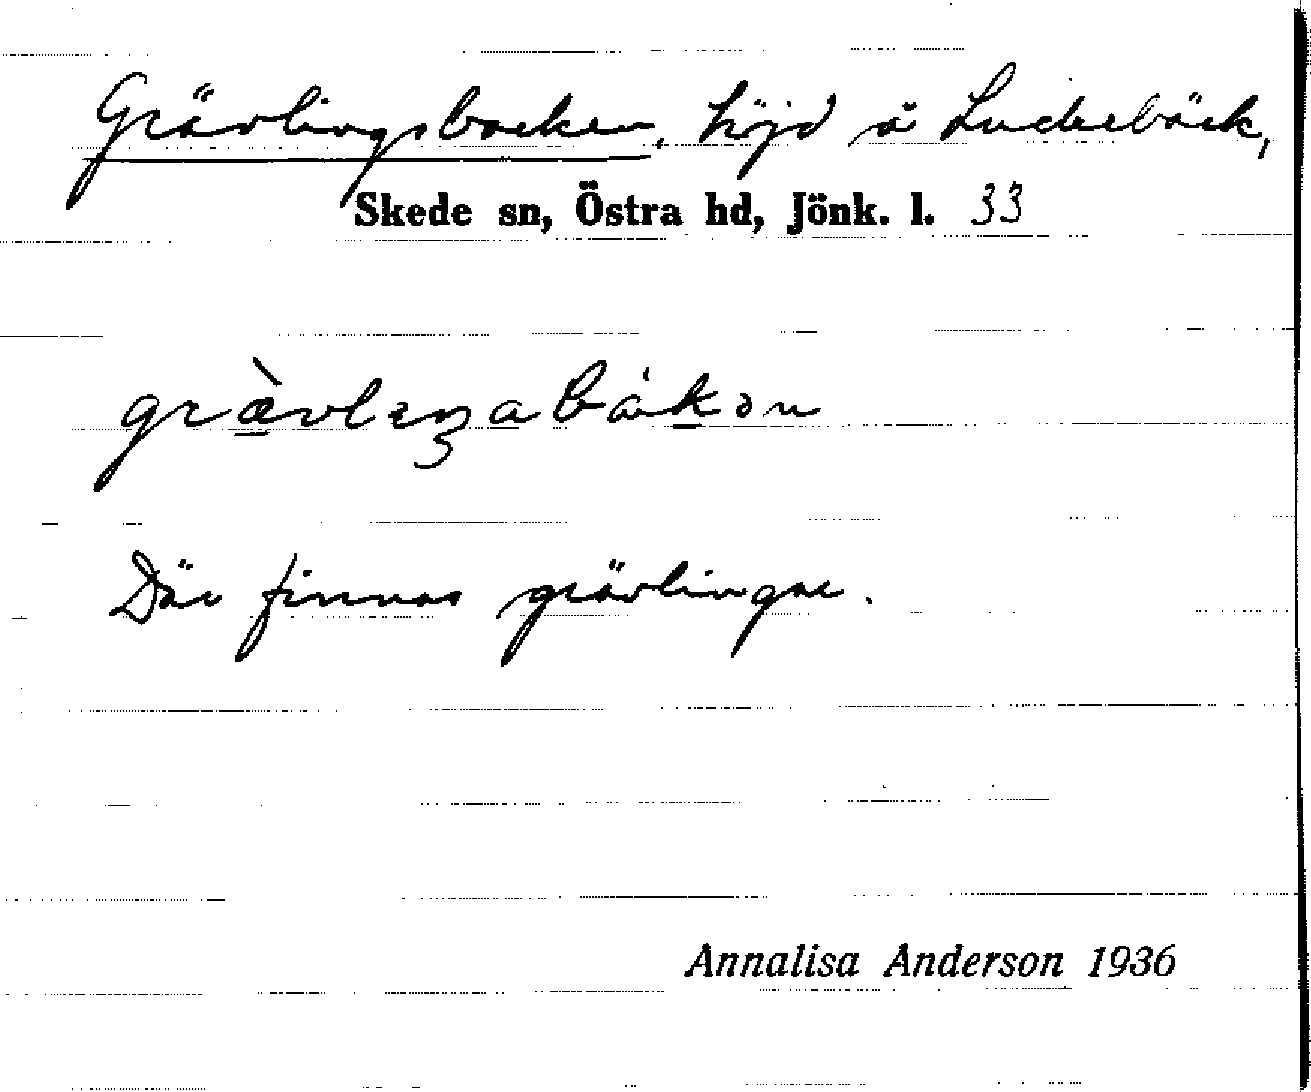 Grävlingsbacken, höjd å Luckebäck,
Skede sn, Östra hd, Jönk. l. 33
grævleŋabåkən
Där finnas grävlingar.
Annalisa Anderson 1936